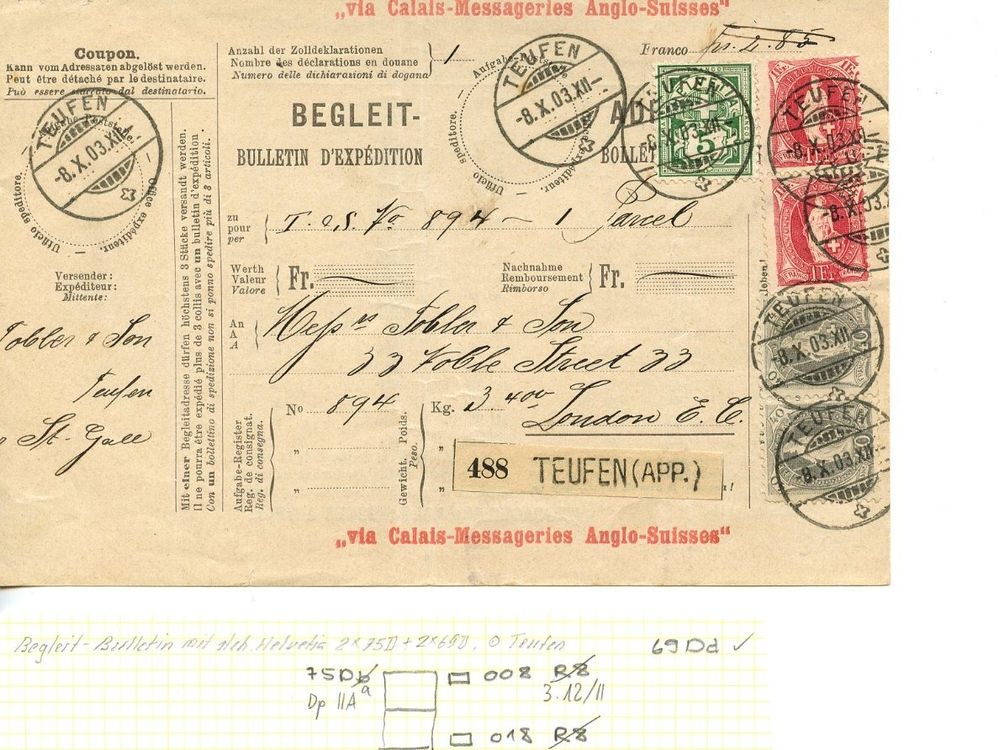 „via Calais-Messageries Anglo-Suisses"
Coupon.
Kann vom Adressaten abgelöst werden.
Peut être détaché par le destinataire.
Può essere staccato dal destinatario.
Anzahl der Zolldeklarationen
Nombre des déclarations en douane
Numero delle dichiarazioni di dogana
1
Franco fr. 2.85
TEUFEN
-8.X.03.XII-
TEUFEN
-8.X.03.XII-
Ufficio speditore.
Office expéditeur.
Ufficio speditore.
expéditeur.
BEGLEIT-
BULLETIN D'EXPÉDITION
AD
BOLLET
5
TEUFEN
-8.X.03.XII-
1 FR.
TEUFEN
-8.X.03.XII-
1 FR.
-8.X.03.X
TEUFEN
-8.X.03.XII-
TEUFEN
-8.X.03.XII-
Mit einer Begleitadresse dürfen höchstens 3 Stücke versandt werden.
Il ne pourra être expédié plus de 3 colis avec un bulletin d'expédition.
Con un bollettino di spedizione non si ponno spedire più di 3 articoli.
zu
pour
per
T. & S. No 894 - 1 Parcel
Versender:
Expéditeur:
Mittente:
Werth
Valeur
Valore
Fr.
Nachnahme
Remboursement
Rimborso
Fr.
kleben!
An
A
A
Messrs Tobler & Son
33 Noble Street 33
London E. C.
Tobler & Son
Teufen
St. Gall
Aufgabe-Register
Reg. de consignat.
Reg. di consegna.
No 894
Gewicht. Poids.
Peso.
Kg. 3 400
488 TEUFEN (APP.)
„via Calais-Messageries Anglo-Suisses"
Begleit-Bulletin mit steh. Helvetia 2x75D + 2x69D, ⊙ Teufen
69Dd ✓
75Db a
008 R8
Dp IIA
3.12/II
018 R8